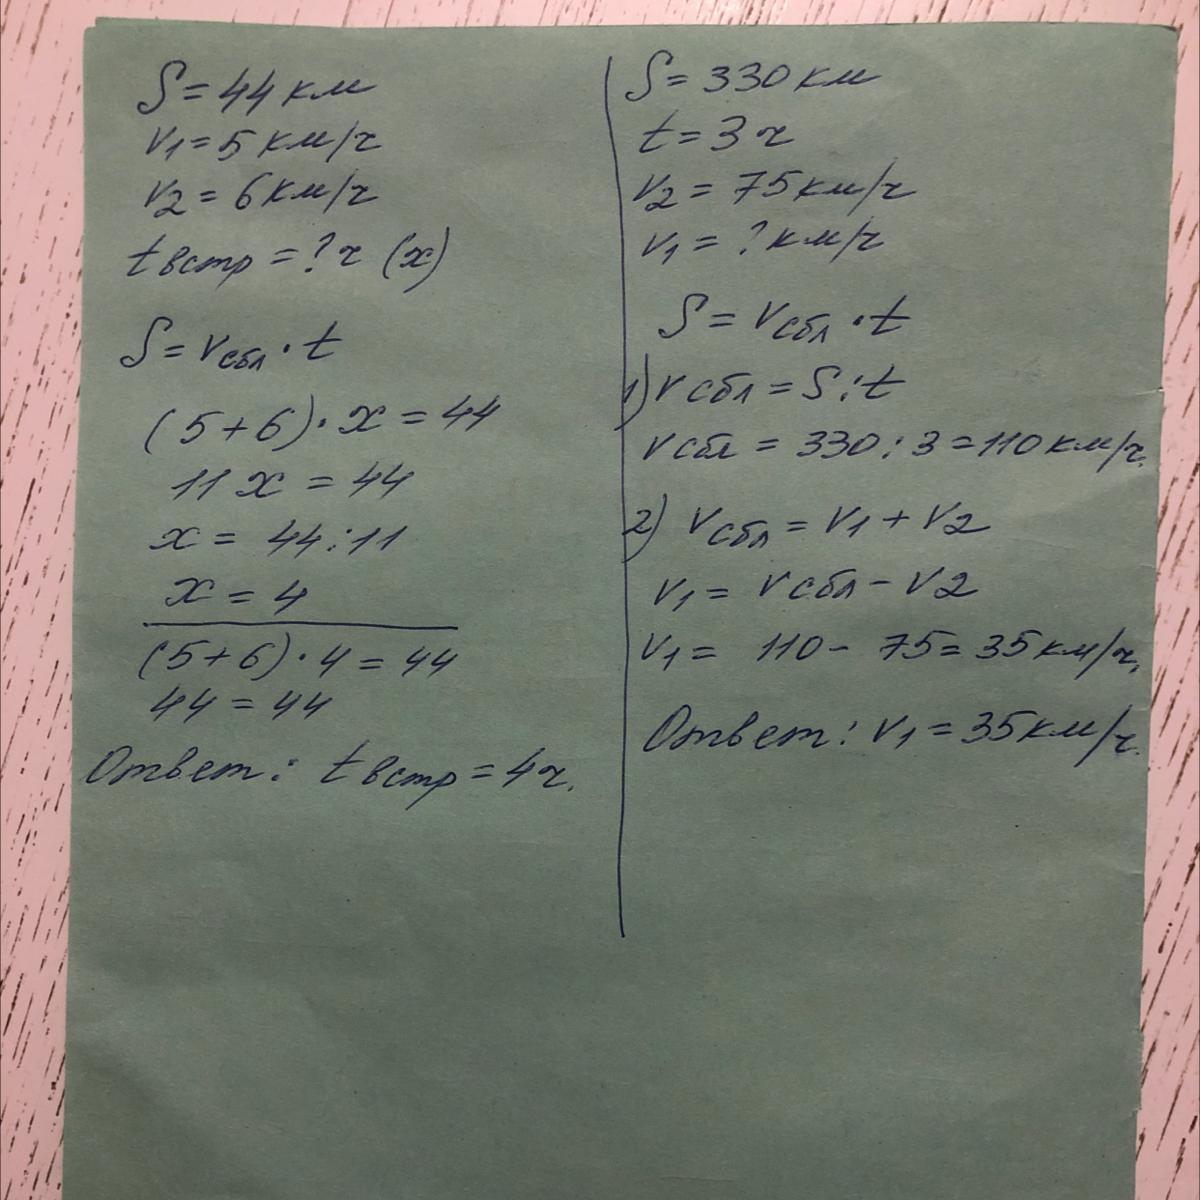 S = 44 км
v1 = 5 км/ч
v2 = 6 км/ч
t встр = ? ч (x)
S = vсбл · t
(5+6) · x = 44
11 x = 44
x = 44 : 11
x = 4
(5+6) · 4 = 44
44 = 44
Ответ: t встр = 4 ч.
S = 330 км
t = 3 ч
v2 = 75 км/ч
v1 = ? км/ч
S = vсбл · t
1) vсбл = S : t
vсбл = 330 : 3 = 110 км/ч.
2) vсбл = v1 + v2
v1 = vсбл - v2
v1 = 110 - 75 = 35 км/ч.
Ответ: v1 = 35 км/ч.